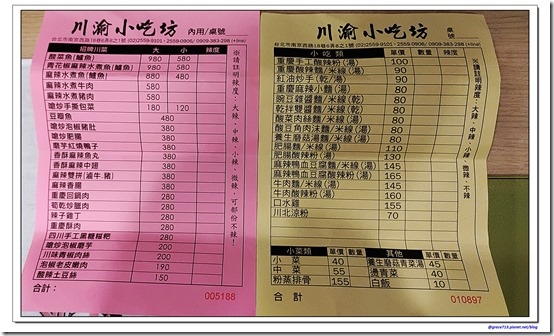 川渝小吃坊 內用/桌號
台北市南京西路18巷6弄8之1號 (02)2559-9101、2559-0806/0909-383-298 (+line)
招牌川菜 大 小 辣度
酸菜魚(鱸魚) 980 580
青花椒麻辣水煮魚(鱸魚) 980 580
麻辣水煮魚(鯛魚) 880 480
麻辣水煮牛肉 580
麻辣水煮豬肉 580
嗆炒手撕包菜 180 120
豆瓣魚 480
嗆炒泡椒豬肚 380
嗆炒肥腸 380
380
香酥麻辣魚丸 380
香酥麻辣中翅 380
麻辣雙拼(滷牛.豬) 380
麻辣香腸 380
重慶回鍋肉 380
筍乾炒臘肉 380
辣子雞丁 380
重慶酥肉 280
四川手工黑糖糍粑 280
嗆炒泡椒魔芋 200
川味青椒肉絲 200
泡椒老皮嫩肉 190
酸辣土豆絲 150
合計：
005188
※請註明辣度：大辣、中辣、小辣、微辣，可部份不辣！
川渝小吃坊 桌號
台北市南京西路18巷6弄8之1號 (02)2559-9101、2559-0806/0909-383-298 (+line)
小吃類 單價 數量 辣度
重慶手工酸辣粉(湯) 100
重慶酸辣麵/米線(湯) 90
紅油炒手(乾/湯) 90
重慶麻辣小麵(湯) 80
豌豆雜醬麵/米線(乾) 80
乾拌雙醬麵/米線(乾) 80
酸菜肉絲麵/米線(湯) 80
酸豆角肉沫麵/米線(湯) 80
養生蘑菇湯麵/米線(湯) 80
肥腸麵/米線(湯) 110
肥腸酸辣粉(湯) 130
麻辣鴨血豆腐麵/米線(湯) 145
麻辣鴨血豆腐酸辣粉(湯) 165
牛肉麵/米線(湯) 145
牛肉酸辣粉(湯) 165
口水雞 155
川北涼粉 70
小菜類 單價 數量 其他 單價 數量
小菜 40 養生蘑菇青菜湯 45
中菜 55 燙青菜 40
粉蒸排骨 155 白飯 10
合計
010897
※請註明辣度：大辣、中辣、小辣、微辣、不辣
@grace713.pixnet.net/blog